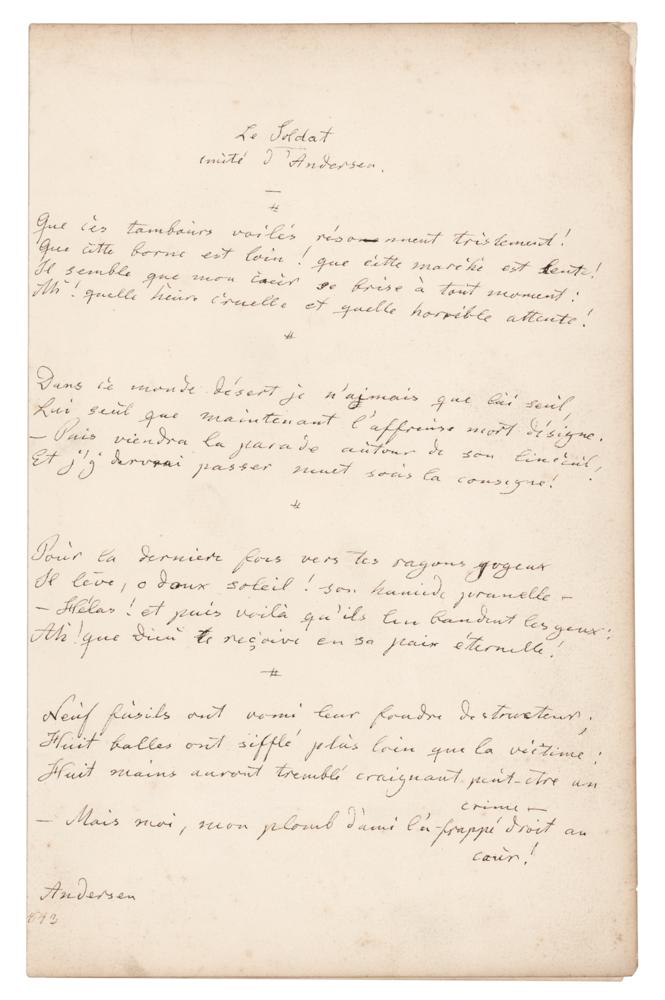 Le Soldat
imité d'Andersen.
Que ces tambours voilés résonnent tristement!
Que cette borne est loin! que cette marche est lente!
Il semble que mon cœur se brise à tout moment:
Ah! quelle heure cruelle et quelle horrible attente!
Dans ce monde désert je n'aimais que lui seul,
Lui seul que maintenant l'affreuse mort désigne.
— Puis viendra la parade autour de son linceul,
Et j'y devrai passer muet sous la consigne!
Pour la dernière fois vers tes rayons joyeux
Il lève, o doux soleil! son humide prunelle —
— Hélas! et puis voilà qu'ils lui bandent les yeux:
Ah! que Dieu te reçoive en sa paix éternelle!
Neuf fusils ont vomi leur foudre destructeur.
Huit balles ont sifflé plus loin que la victime:
Huit mains auront tremblé craignant peut-être un
crime —
— Mais moi, mon plomb d'ami l'a frappé droit au
cœur!
Andersen